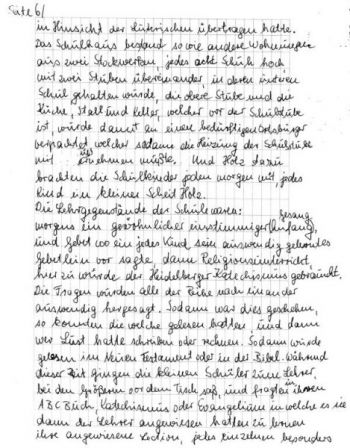 Seite 6/
in Hinsicht der historischen übertragen hatte.
Das Schulhaus bestand so wie andere Wohnungen
aus zwei Stockwerken, jedes acht Schuh hoch
mit zwei Stuben übereinander, in deren unteren
Schul gehalten wurde, die obere Stube und die
Küche, Stall und Keller, welcher vor der Schulstube
ist, wurde damit an einen bedürftigen Ortsbürger
verpachtet, welcher sodann die Heizung der Schulstube
mit übernehmen mußte. Und Holz dazu
brachten die Schulkinder jeden morgen mit, jedes
Kind ein kleines Scheit Holz.
Die Lehrgegenstände der Schule waren:
morgens ein gewöhnlicher einstimmiger Gesang Anfang,
und Gebet wo ein jedes Kind, sein auswendig gelerntes
Gebetlein vor sagte, dann Religionsunterricht,
hier zu wurde der Heidelberger Katechismus gebraucht.
Die Fragen wurden alle der Reihe nach einander
auswendig hergesagt. Sodann war dies geschehen,
so konnten die welche gelesen hatten, und dann
wer Lust hatte schreiben oder rechnen. Sodann wurde
gelesen im Neuen Testament oder in der Bibel. Während
dieser Zeit gingen die kleinen Schüler zum Lehrer,
bei den Größern vor dem Tisch saß, und fragten in ihrem
ABC Buch, Katechismus oder Evangelium in welche es sie
dann der Lehrer angewiesen hatten zu lernen
ihre angewiesene Lection, jeder einzelne besonders